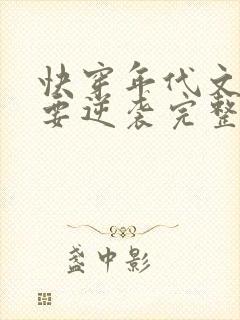 快穿年代文
要逆袭完整
盏中影